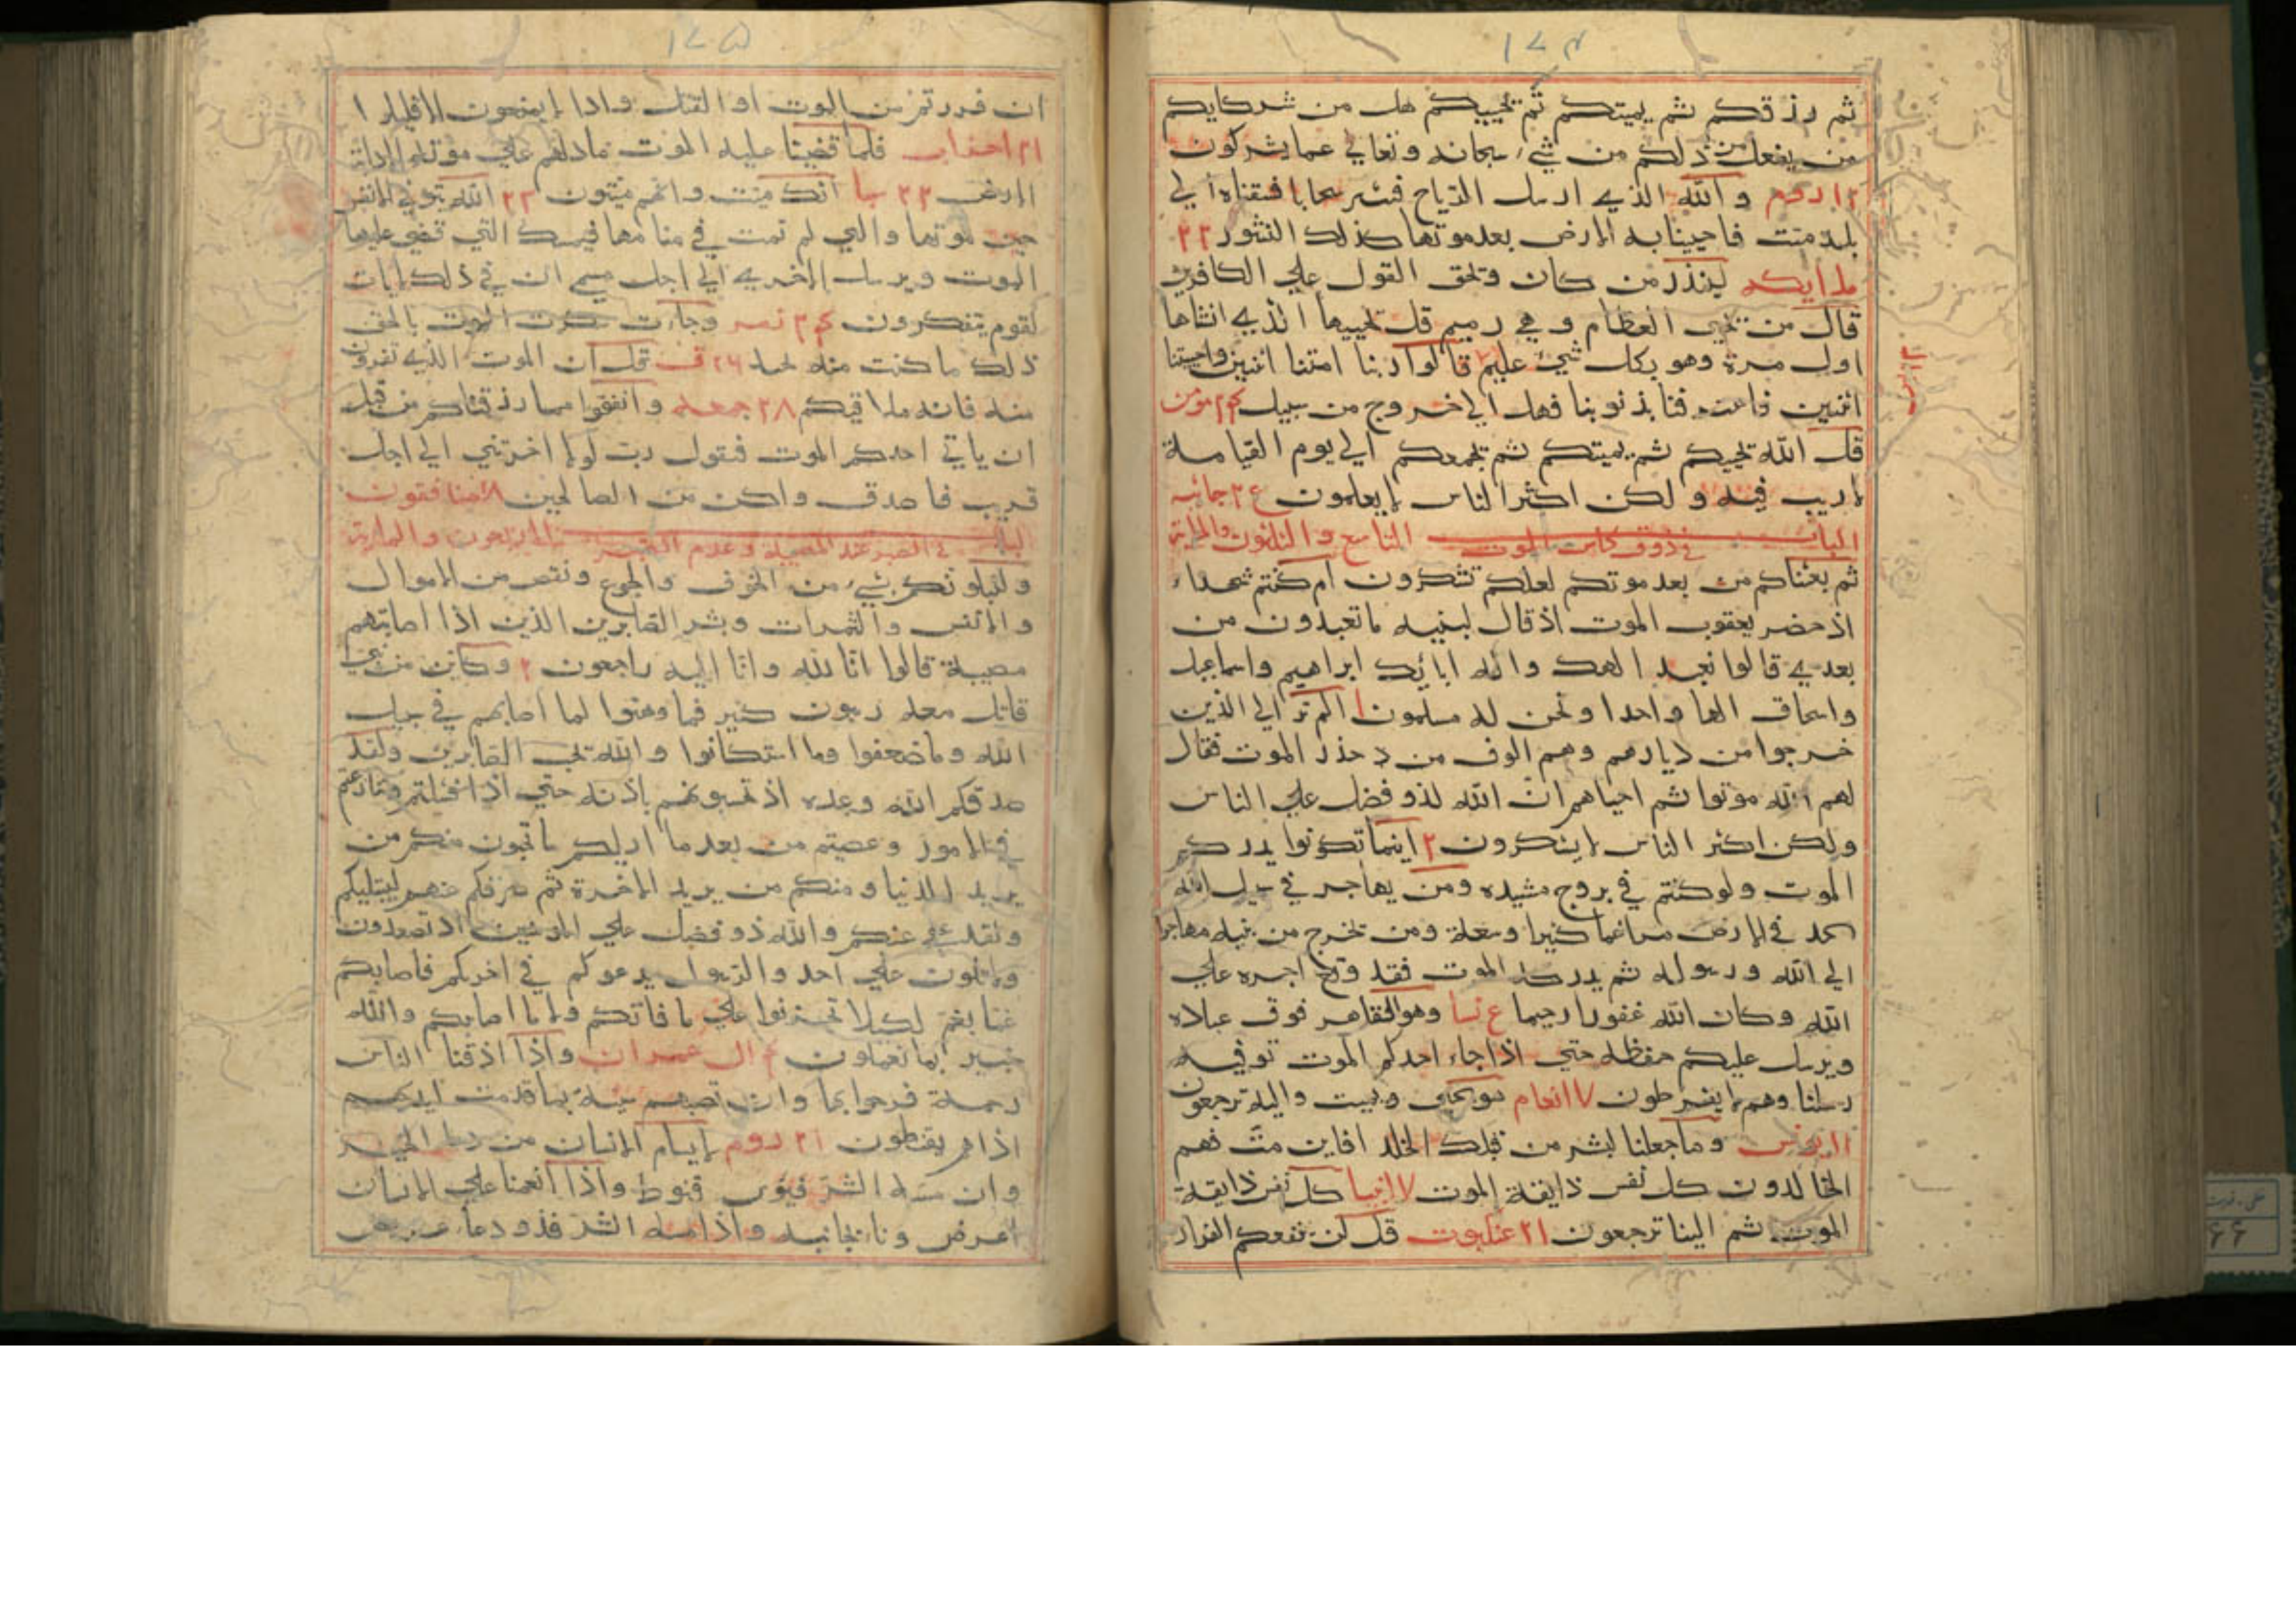 ۱۷۴
ثم رزقكم ثم يميتكم ثم يحييكم هل من شركايكم
من يفعل من ذلكم من شيء سبحانه وتعالي عما يشركون
۲۱ روم والله الذي ارسل الرياح فتثير سحابا فسقناه الي
بلد ميت فاحيينا به الارض بعد موتها كذلك النشور ۲۲
ملايكه لينذر من كان ويحق القول علي الكافرين
قال من يحيي العظام وهي رميم قل يحييها الذي انشاها
اول مرة وهو بكل شيء عليم قالوا ربنا امتنا اثنين واحيتنا
اثنين فاعترفنا بذنوبنا فهل الي خروج من سبيل ۲۴ مؤمن
قل الله يحييكم ثم يميتكم ثم يجمعكم الي يوم القيامة
لاريب فيه ولكن اكثر الناس لايعلمون ۲۵ جاثيه
الباب التاسع والثلثون والماية في ذوق كاس الموت
ثم بعثناكم من بعد موتكم لعلكم تشكرون ام كنتم شهداء
اذ حضر يعقوب الموت اذ قال لبنيه ما تعبدون من
بعدي قالوا نعبد الهك واله ابائك ابراهيم واسماعيل
واسحاق الها واحدا ونحن له مسلمون ا الم تر الي الذين
خرجوا من ديارهم وهم الوف من حذر الموت فقال
لهم الله موتوا ثم احياهم ان الله لذو فضل علي الناس
ولكن اكثر الناس لايشكرون ۲ اينما تكونوا يدرككم
الموت ولو كنتم في بروج مشيده ومن يهاجر في سبيل الله
يجد في الارض مراغما كثيرا وسعة ومن يخرج من بيته مهاجرا
الي الله ورسوله ثم يدركه الموت فقد وقع اجره علي
الله وكان الله غفورا رحيما ۵ نسا وهو القاهر فوق عباده
ويرسل عليكم حفظة حتي اذا جاء احدكم الموت توفيه
رسلنا وهم لايفرطون ۷ انعام هو يحيي ويميت واليه ترجعون
۱۱ يونس وما جعلنا لبشر من قبلك الخلد افاين مت فهم
الخالدون كل نفس ذايقة الموت ۱۷ انبيا كل نفس ذايقة
الموت ثم الينا ترجعون ۲۱ عنكبوت قل لن ينفعكم الفرار
۱۷۵
ان فررتم من الموت او القتل واذا لايمتعون الاقليلا
۲۱ احزاب فلما قضينا عليه الموت ما دلهم علي موته الا دابة
الارض ۲۲ سبا انك ميت وانهم ميتون ۲۳ الله يتوفي الانفس
حين موتها والتي لم تمت في منامها فيمسك التي قضي عليها
الموت ويرسل الاخري الي اجل مسمي ان في ذلك لايات
لقوم يتفكرون ۲۴ زمر وجاءت سكرت الموت بالحق
ذلك ما كنت منه تحيد ۲۶ ق قل ان الموت الذي تفرون
منه فانه ملاقيكم ۲۸ جمعه وانفقوا مما رزقناكم من قبل
ان ياتي احدكم الموت فيقول رب لولا اخرتني الي اجل
قريب فاصدق واكن من الصالحين ۲۸ منافقون
الباب الاربعون والماية في الصبر عند المصيبة وعدم الصبر
ولنبلونكم بشيء من الخوف والجوع ونقص من الاموال
والانفس والثمرات وبشر الصابرين الذين اذا اصابتهم
مصيبة قالوا انا لله وانا اليه راجعون ۲ وكاين من نبي
قاتل معه ربيون كثير فما وهنوا لما اصابهم في سبيل
الله وما ضعفوا وما استكانوا والله يحب الصابرين ولقد
صدقكم الله وعده اذ تحسونهم باذنه حتي اذا فشلتم وتنازعتم
في الامور وعصيتم من بعد ما اريكم ما تحبون منكم من
يريد الدنيا ومنكم من يريد الاخرة ثم صرفكم عنهم ليبتليكم
ولقد عفي عنكم والله ذو فضل علي المؤمنين اذ تصعدون
ولاتلون علي احد والرسول يدعوكم في اخركم فاصابكم
غما بغم لكيلا تحزنوا علي ما فاتكم ولا ما اصابكم والله
خبير بما تعملون ۴ ال عمران واذا اذقنا الناس
رحمة فرحوا بها وان تصبهم سيئة بما قدمت ايديهم
اذا هم يقنطون ۲۱ روم لايسام الانسان من دعا الخير
وان مسه الشر فيؤس قنوط واذا انعمنا علي الانسان
اعرض ونا بجانبه واذا مسه الشر فذو دعاء عريض